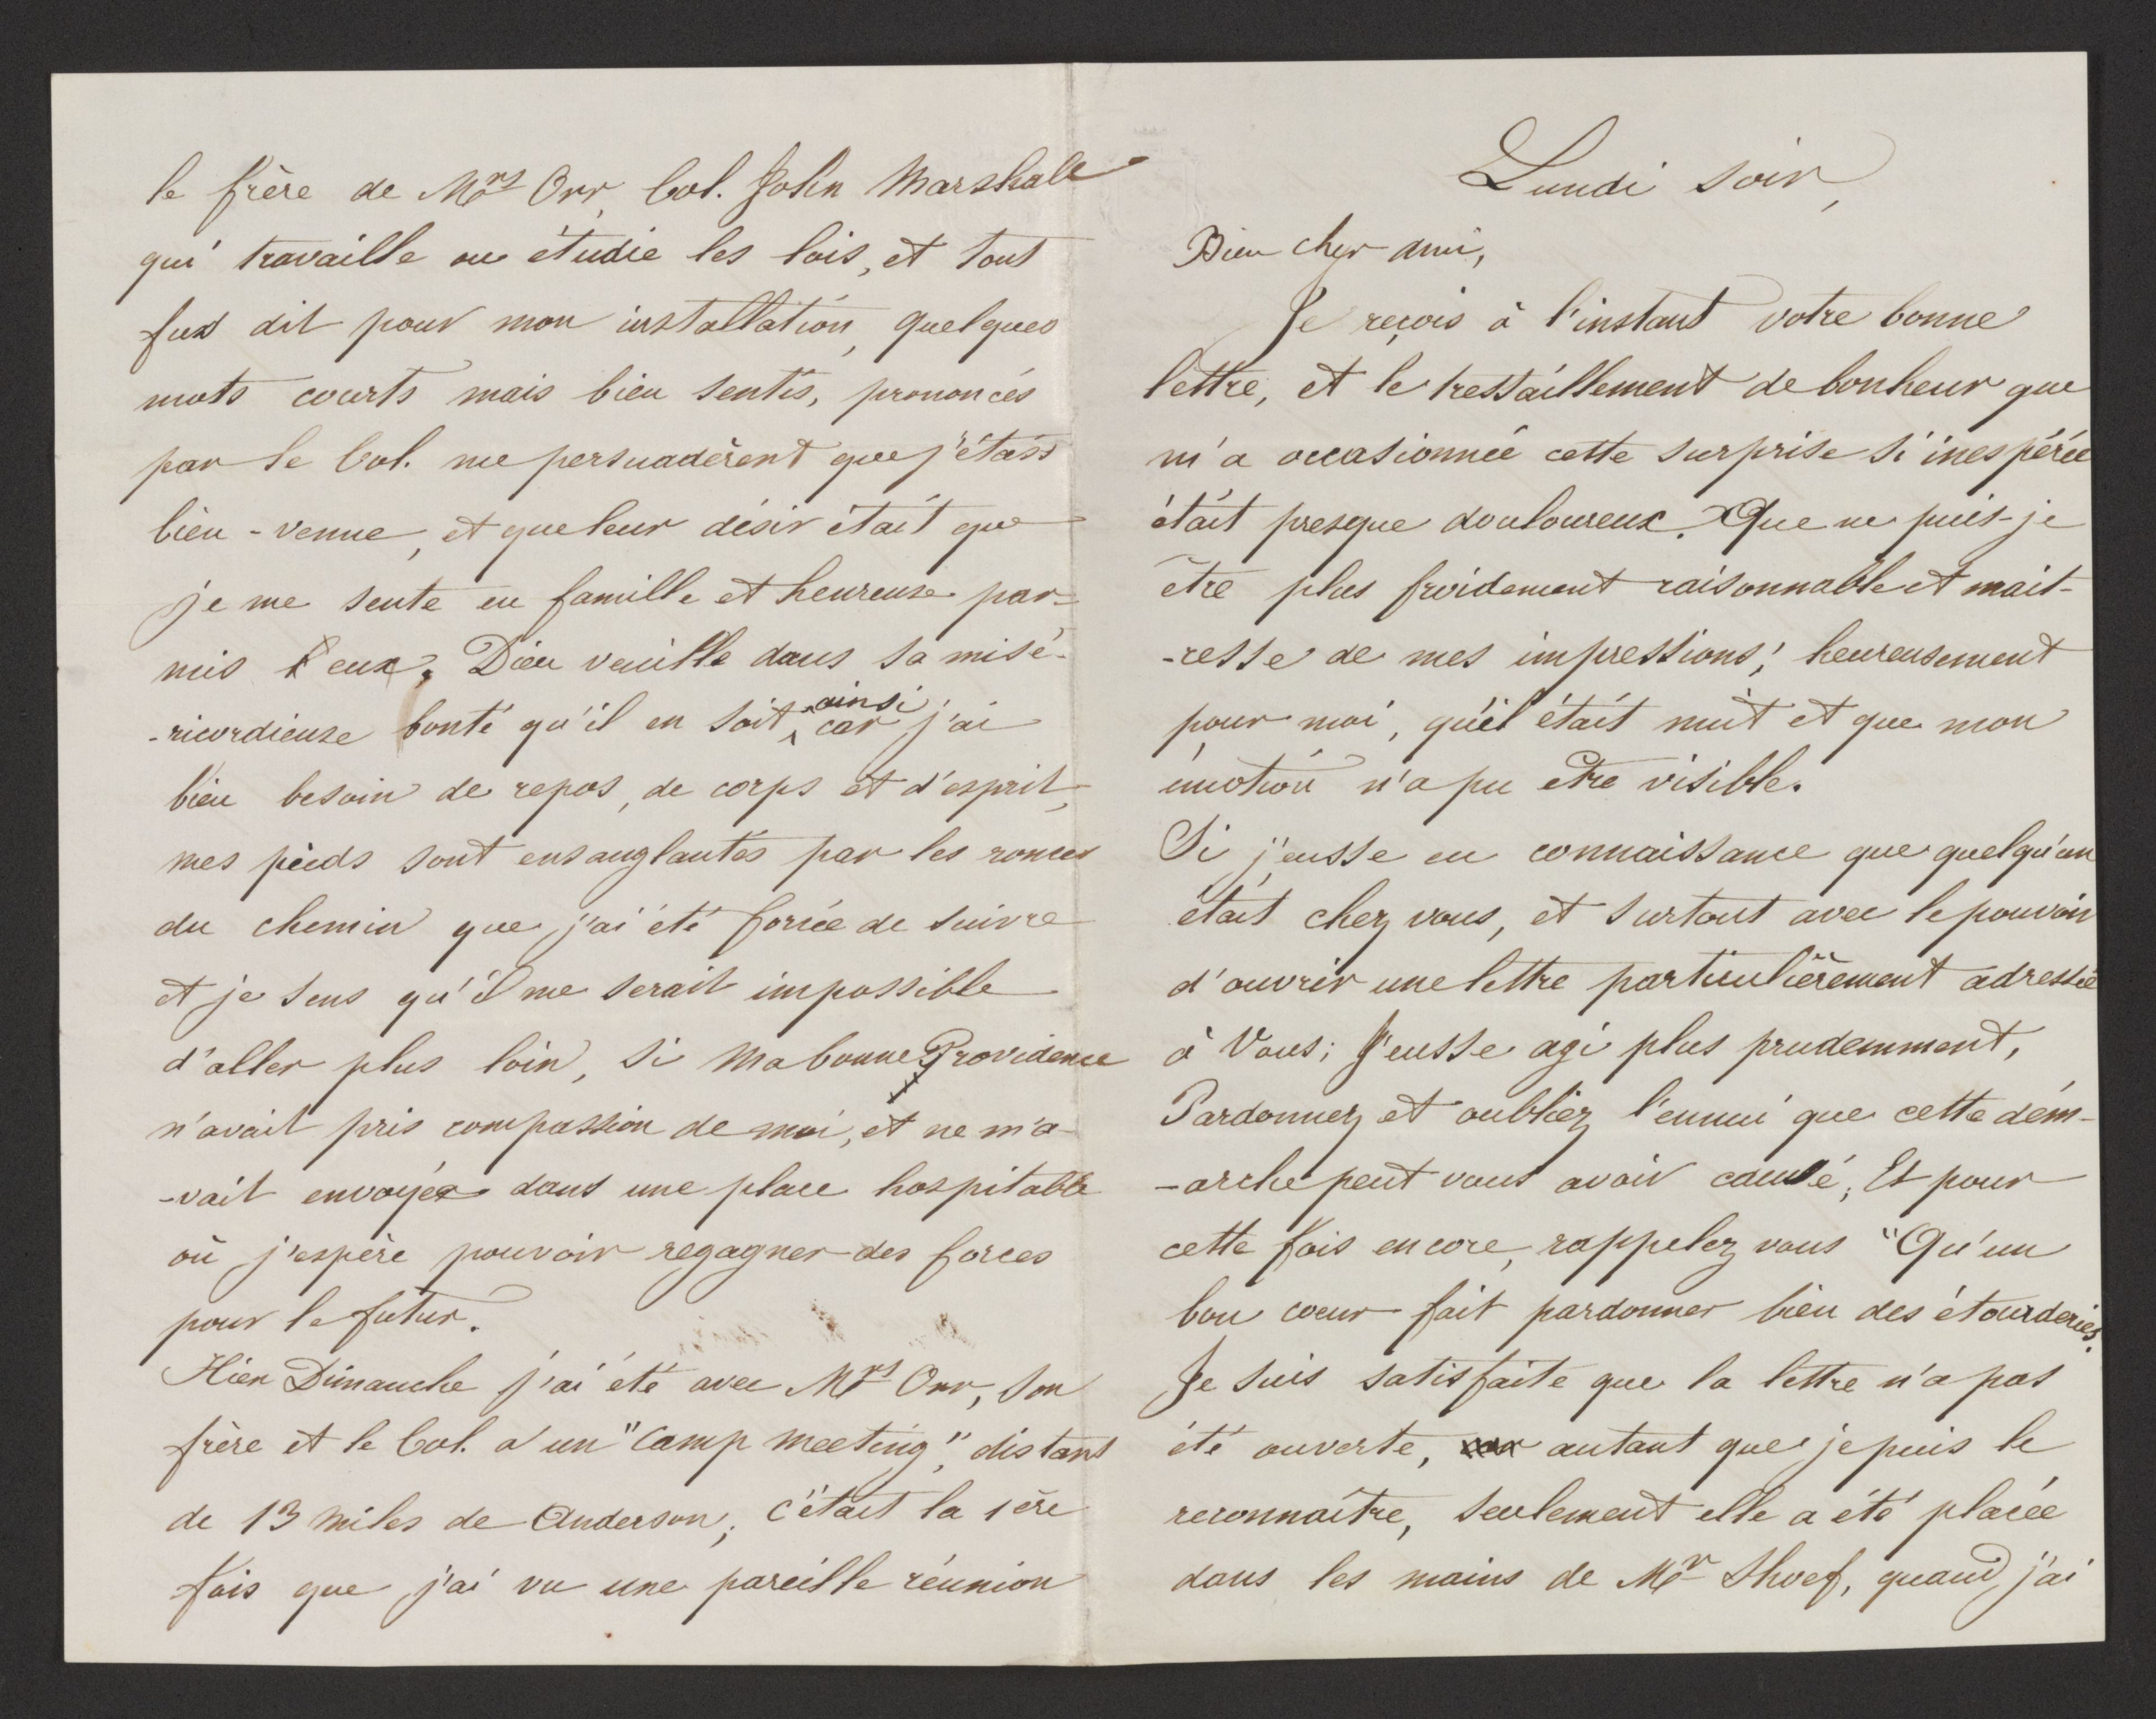 Lundi soir,
Bien cher ami,
Je reçois à l'instant votre bonne
lettre, et le tressaillement de bonheur que
m'a occasionnée cette surprise si inespérée
était presque douloureux. Que ne puis-je
être plus froidement raisonnable et mait-
-resse de mes impressions; heureusement
pour moi, qu'il était nuit et que mon
émotion n'a pu etre visible.
Si j'eusse eu connaissance que quelqu'un
était chez vous, et surtout avec le pouvoir
d'ouvrir une lettre particulièrement adressée
à Vous; J'eusse agi plus prudemment,
Pardonnez et oubliez l'ennui que cette dém-
-arche peut vous avoir causé; Et pour
cette fois encore, rappelez vous "Qu'un
bon coeur fait pardonner bien des étourderies.
Je suis satisfaite que la lettre n'a pas
été ouverte, autant que je puis le
reconnaître, seulement elle a été placée
dans les mains de Mr Shoef, quand j'ai
le frère de Mrs Orr, Col. John Marshall
qui travaille ou étudie les lois, et tout
fut dit pour mon installation, quelques
mots courts mais bien sentis, prononcés
par le Col. me persuadèrent que j'étais
bien-venue, et que leur désir était que
je me sente en famille et heureuse par-
mis eux. Dieu veuille dans sa misé-
-ricordieuse bonté qu'il en soit ainsi car j'ai
bien besoin de repos, de corps et d'esprit,
mes pieds sont ensanglantés par les ronces
du chemin que j'ai été forcée de suivre
et je sens qu'il me serait impossible
d'aller plus loin, si ma bonne Providence
n'avait pris compassion de moi, et ne m'a-
-vait envoyée dans une place hospitable
où j'espère pouvoir regagner des forces
pour le futur.
Hier Dimanche j'ai été avec Mrs Orr, son
frère et le Col. a un "Camp meeting", distant
de 13 miles de Anderson; c'était la 1ère
fois que j'ai vu une pareille réunion